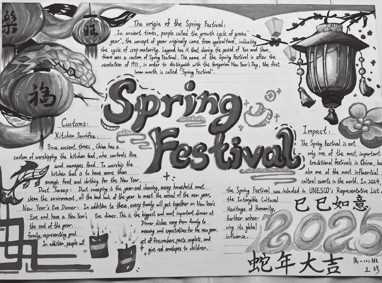 樂
福
The origin of the Spring Festival:
In ancient times, people called the growth cycle of grains "
year", the concept of year originally came from agriculture, indicating
the cycle of crop maturity. Legend has it that during the period of Yao and Shun,
there was a custom of Spring Festival. The name of the Spring Festival is after the
revolution of 1911, in order to distinguish with the Gregorian New Year's Day, the first
lunar month is called "Spring Festival".
Spring
Festival
Customs:
Kitchen Sacrifice:
Since ancient times, China has
custom of worshipping the kitchen god, who controls fire
and manages food. To worship the
kitchen god is to have more than
enough food and clothing for the New Year.
Dust Sweep: Dust sweeping is the year-end cleaning, every household must
clean the environment, all the bad luck of the year to meet the arrival of the new year,
New Year's Eve Dinner: In addition to these, every family will get together on New Year's
Eve and have a New Year's Eve dinner. This is the biggest and most important dinner at
the end of the year.
Dinner dishes vary from family to
family, representing good
meaning and expectations for the new year.
In addition, people will
set off firecrackers, paste couplets, and
give red envelopes to children.
Impact:
The Spring Festival is not
only one of the most important
traditional festivals in China, but
also one of the most influential
cultural events in the world. In 2024,
the Spring Festival was included in UNESCO's Representative List of
the Intangible Cultural
Heritage of Humanity,
further enhan-
cing its global
influence.
巳巳如意
2025
蛇年大吉